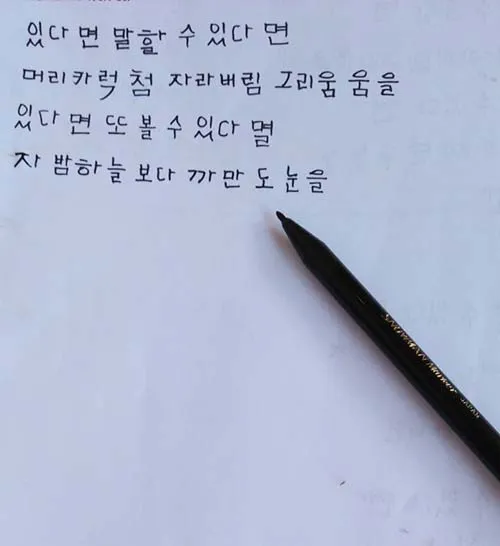 있다 면 말할 수 있다 면
머리카럭 첨 자라버림 그리움 움을
있다 면 또 볼 수 있다 멸
자 밤하늘 보다 까 만 도 눈을
JAPAN